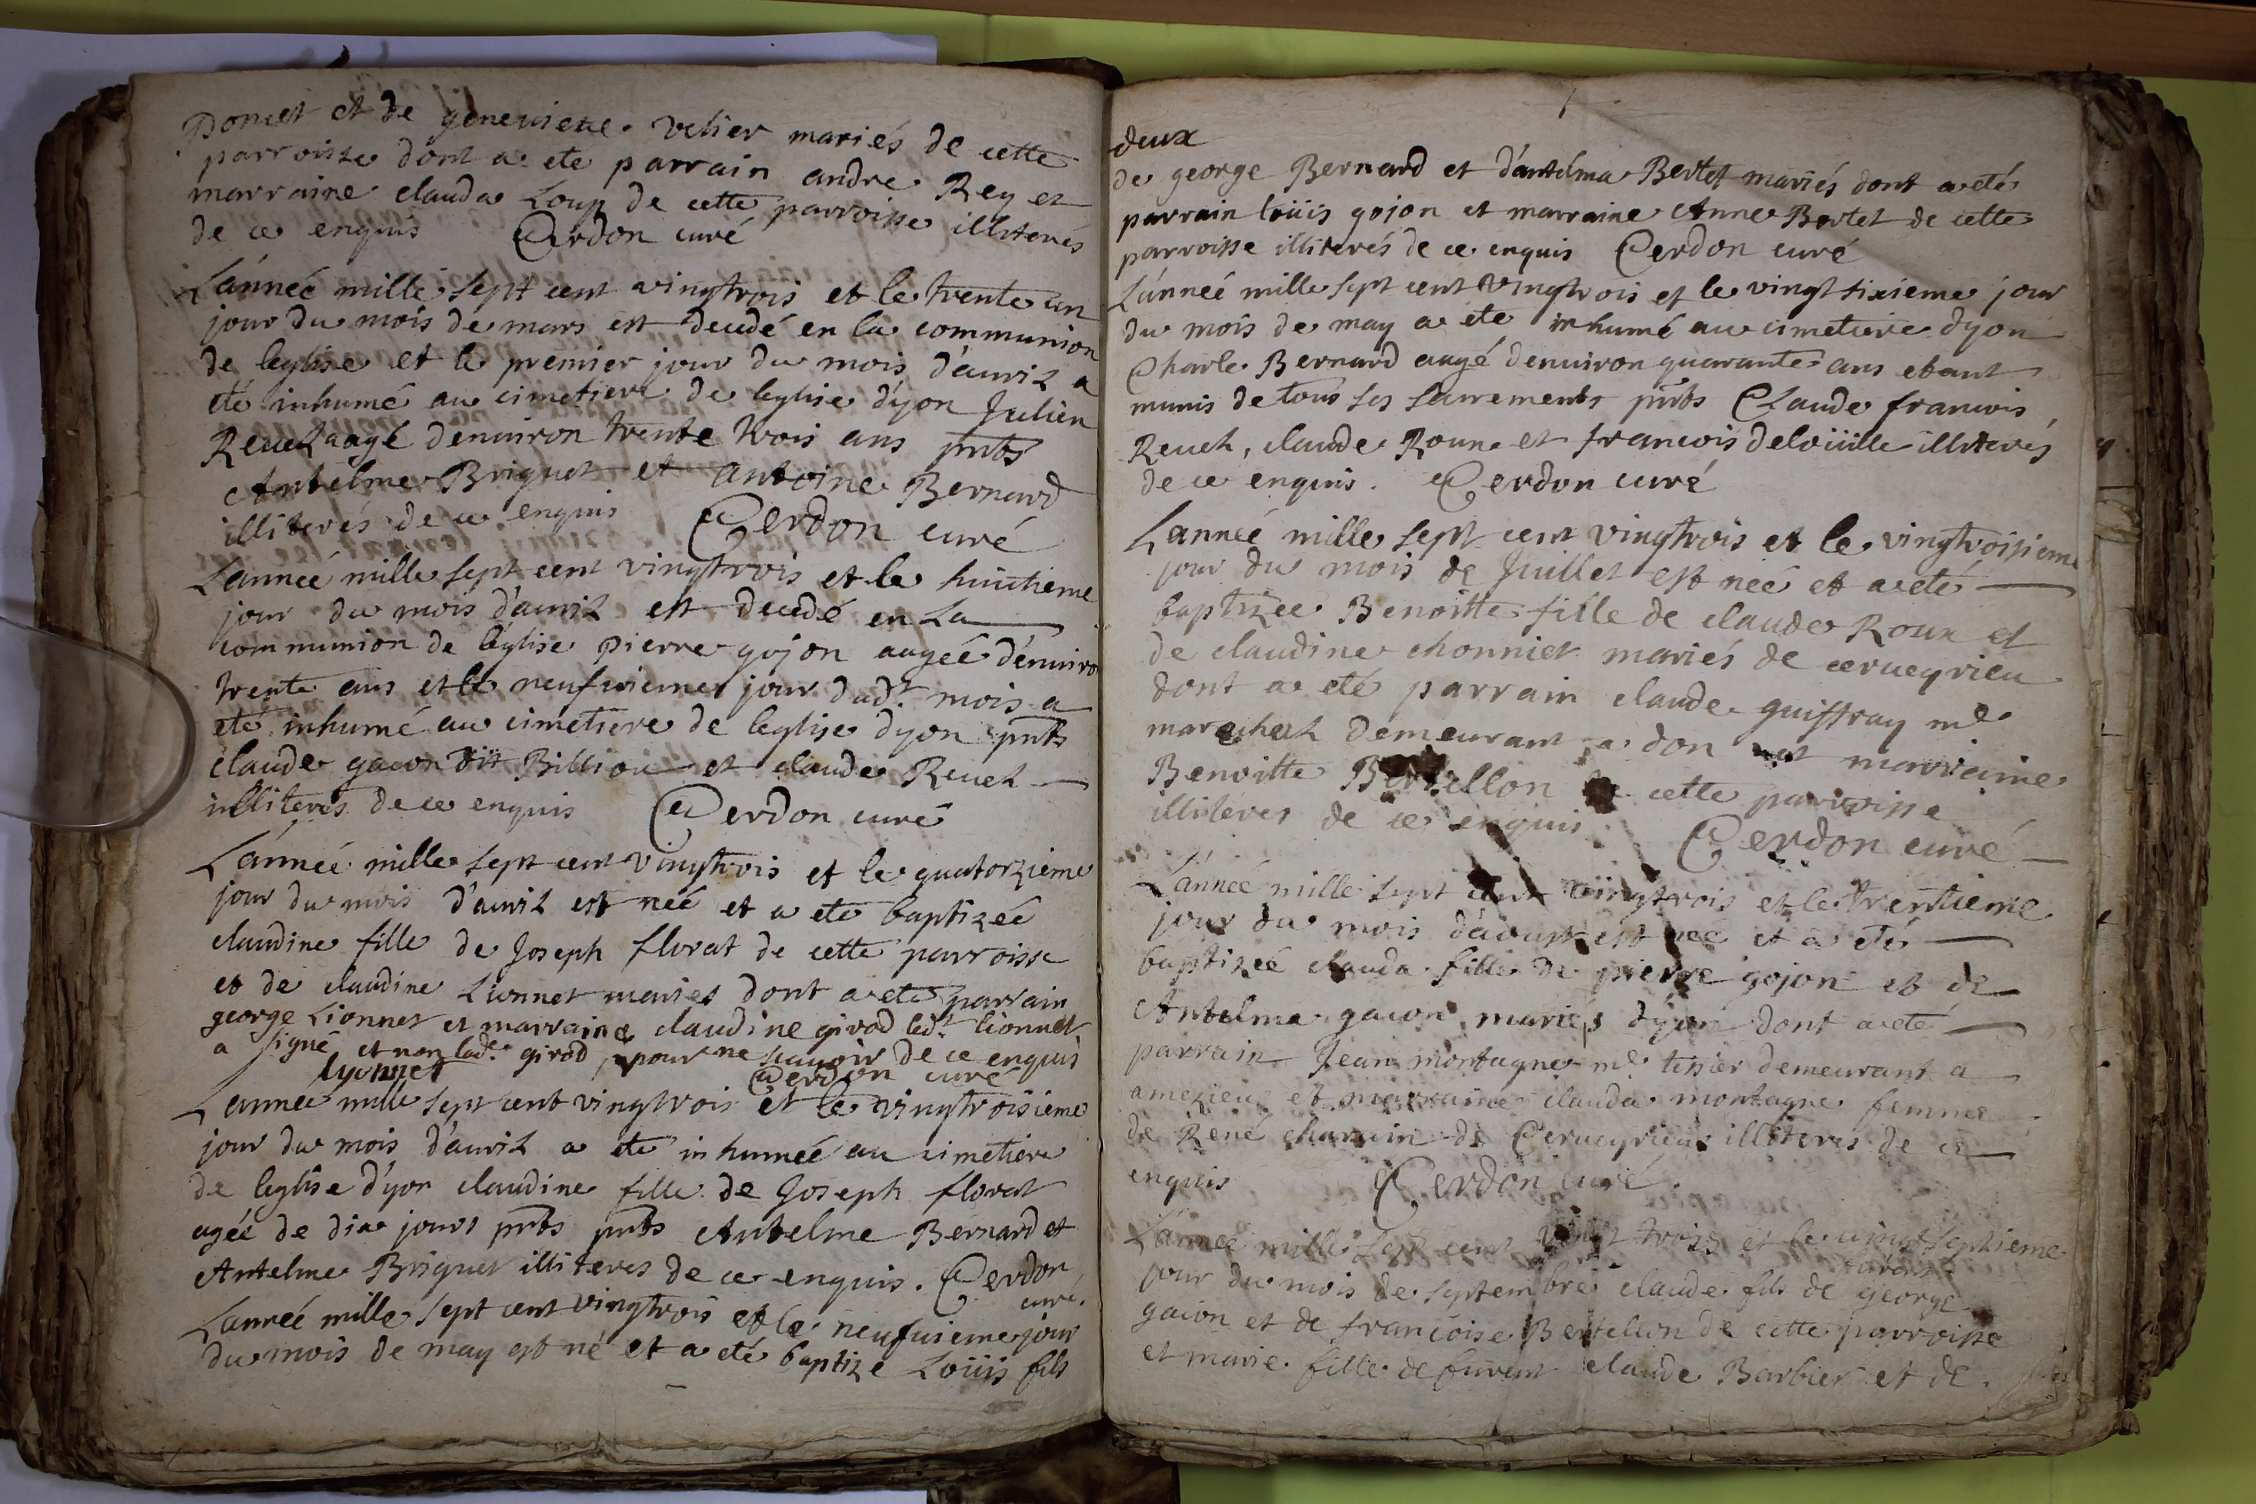 Poncet et de genevieve velier mariés de cette
parroisse dont a ete parrain andre Rey et
marraine clauda Loup de cette parroisse illiterés
de ce enquis Cerdon curé
L'année mille sept cent vingtrois et le trente un
jour du mois de mars est decedé en la communion
de leglise et le premier jour du mois d'auril a
eté inhumé au cimetiere de leglise dyon Julien
Reuel aagé denuiron trente trois ans pnts
Antelme Briguet et antoine Bernard
illiterés de ce enquis Cerdon curé
Lanneé mille sept cent vingtrois et le huictieme
jour du mois d'auril est decedé en La
communion de l'église pierre gojon aageé d'enuiro
trente ans et le neufuieme jour dudt mois a
eté inhumé au cimetiere de leglise dyon pnts
claude gacon dit Billion et claude Reuel
illiterés de ce enquis Cerdon curé
L'anneé mille sept cent vingtrois et le quatorzieme
jour du mois d'auril est neé et a ete baptizeé
claudine fille de Joseph florat de cette parroisse
et de claudine Lionnet mariés dont a ete parrain
george Lionnet et marraine claudine girod ledt lionnet
a signé et non lade girod pour ne scauoir de ce enquis
lyonnet Cerdon curé
Lanneé mille sept cent vingtrois et le vingtroisieme
jour du mois d'auril a ete inhumeé au cimetiere
de leglise d'yon claudine fille de Joseph florat
ageé de dix jours pnts pnts Antelme Bernard et
Antelme Briguet illiteres de ce enquis. Cerdon
curé.
Lanneé mille sept cent vingtrois et le neufuieme jour
du mois de may est né et a eté baptizé Loüis fils
deux
de george Bernard et d'antelma Bertet mariés dont a eté
parrain loüis gojon et marraine Anne Bertet de cette
parroisse illiterés de ce enquis Cerdon curé
L'anneé mille sept cent vingtrois et le vingt sixieme jour
du mois de may a ete inhumé au cimetiere dyon
Charle Bernard aagé denuiron quarante ans etant
munis de tous ses sacrements pnts Claude francois
Reuel, claude Roux et francois deloüille illiterés
de ce enquis. Cerdon curé
Lanneé mille sept cent vingtrois et le vingtroisieme
jour du mois de Juillet est neé et a eté
baptizeé Benoitte fille de claude Roux et
de claudine chonniet mariés de cerueyrieu
dont a eté parrain claude guiffray me
marechal demeurant a don et marraine
Benoitte Bertellon de cette parroisse
illiterés de ce enquis Cerdon curé
L'anneé mille sept cent vingtrois et le trentieme
jour du mois d'aoust est neé et a eté
baptizeé clauda fille de pierre gojon et de
Antelma gacon mariés dyon dont a eté
parrain Jean montagne me tissier demeurant a
amezieu et marraine clauda montagne femme
de René charuin de Cerueyrieu illiterés de ce
enquis Cerdon curé.
L'anneé mille sept cent vingt trois et le vingt septieme
jour du mois de septembre claude fils de george
gacon et de francoise Bertellon de cette parroisse
et marie fille de claude Barbier et de